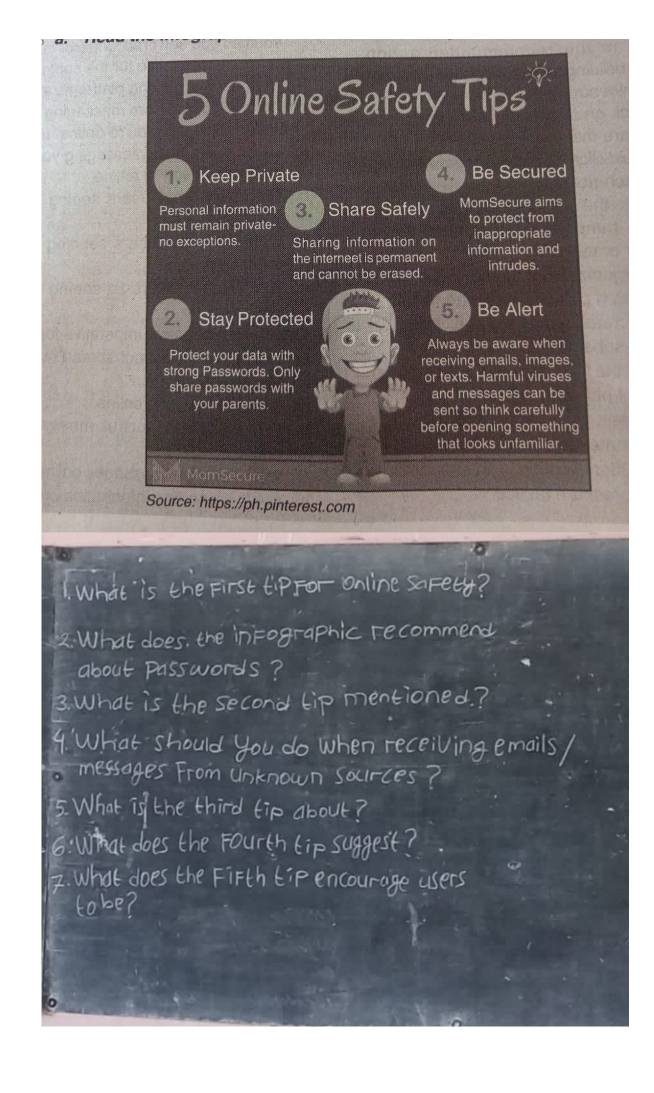 a. Read the infograp
5 Online Safety Tips
1. Keep Private
Personal information
must remain private-
no exceptions.
2. Stay Protected
Protect your data with
strong Passwords. Only
share passwords with
your parents.
3. Share Safely
Sharing information on
the interneet is permanent
and cannot be erased.
4. Be Secured
MomSecure aims
to protect from
inappropriate
information and
intrudes.
5. Be Alert
Always be aware when
receiving emails, images,
or texts. Harmful viruses
and messages can be
sent so think carefully
before opening something
that looks unfamiliar.
MomSecure
Source: https://ph.pinterest.com
1. What is the First tip For online saFety?
2. What does. the inFographic recommend
about Passwords ?
3. What is the second tip mentioned.?
4. What should you do when receiving emails/
messages From unknown sources ?
5. What is the third tip about?
6. What does the Fourth tip suggest?
7. What does the FiFth tip encourage users
to be?